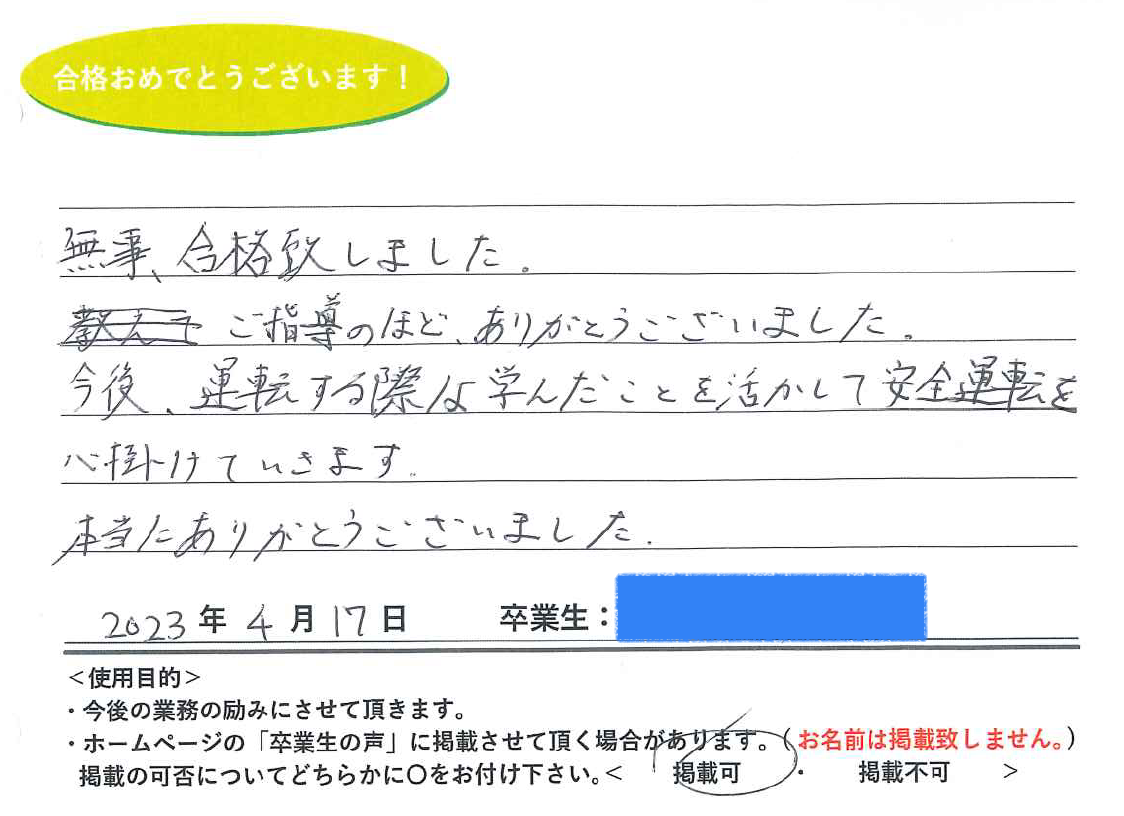 合格おめでとうございます！
無事、合格致しました。
ご指導のほど、ありがとうございました。
今後、運転する際は学んだことを活かして安全運転を
心掛けていきます。
本当にありがとうございました。
2023年4月17日 卒業生：
＜使用目的＞
・今後の業務の励みにさせて頂きます。
・ホームページの「卒業生の声」に掲載させて頂く場合があります。（お名前は掲載致しません。）
掲載の可否についてどちらかに〇をお付け下さい。＜ 掲載可 ・ 掲載不可 ＞